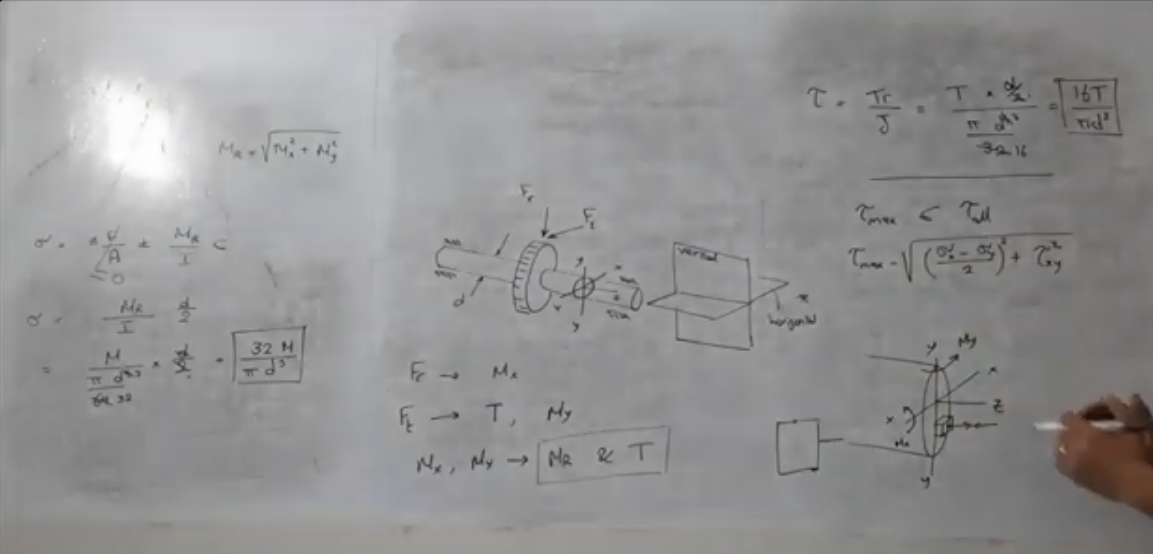 M_R = √(M_x² + M_y²)
σ = ± F/A ± M_R/I c
= 0
σ = M_R/I d/2
= M/(π d⁴³/64 32) × d/2 = 32 M/(π d³)
F_r
F_t
y
x
x
y
d
vertical
horizontal
F_r → M_x
F_t → T, M_y
M_x, M_y → M_R & T
τ = Tr/J = (T × d/2)/(π d⁴³/32 16) = 16T/(πd³)
τ_max < τ_all
τ_max = √(((σ_x − σ_y)/2)² + τ_xy²)
y M_y
x
z
x
M_x
y